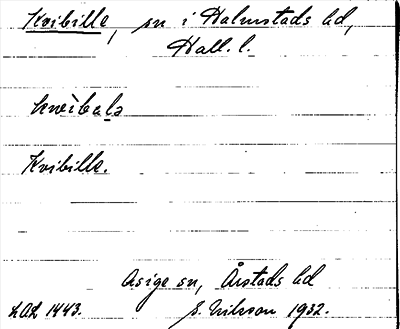 Kvibille, sn i Halmstads hd,
Hall. l.
kwìbələ
Kvibille.
Asige sn, Årstads hd
LAL 1443. S. Nilsson 1932.